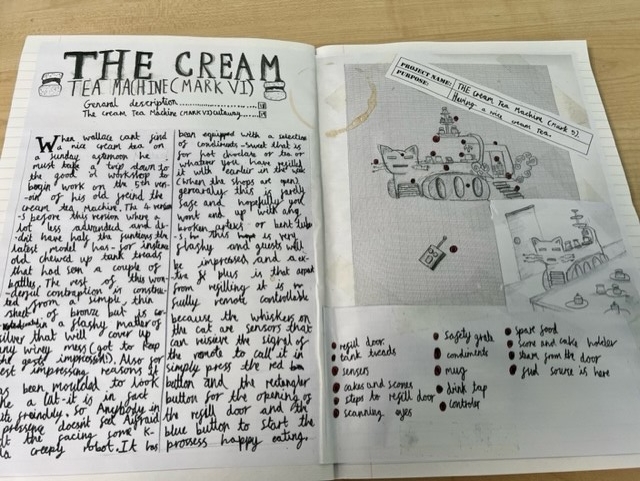 THE CREAM
TEA MACHINE (MARK VI)
General description
The cream Tea Machine (MARK VI) cutaway
When wallace cant find
a nice cream tea on
a sunday afternoon he
must take a trip down to
the good ol workshop to
begin work on the 5th ver-
-sion of his old freind the
cream tea Machine. The 4 version
-s before this version where a
lot less advanced and di-
-dn't have half the funtions the
latest model has - for instens
old chewed up tank treads
that had seen a couple of
battles. The rest of this won-
-derful contraption is construc-
ted from a simple, thin
sheet of bronze but is co-
in a flashy matter of
silver that will cover up
any wirey mess (got to keep
the guest impressed!). Also for
est impressing reasons it
as been moulded to look
ke a cat - it is in fact
ite freindly. So Anybody in
presence doesnt feel Afraid
t the facing some k-
a creepy robot. It has
been equipped with a selection
of condiments - sweet that is
for hot choclate or tea or
whatever you have refilld
it with earlier in the
(when the shops are open)
generaly this is fairly
safe and hopefully you
wont end up with any
broken or bent
-s. for this is very
flashy and guests will
be impressed and a ex-
tra plus is that apart
from refilling it is
fully remote controllable
because the whiskers on
the cat are sensors that
can recive the signal of
the remote to call it in
simply press the red
button and the rectangler
button for the opening of
the refill door and the
blue button to start the
prossess happy eating.
PROJECT NAME: THE Cream Tea Machine (mark 5)
PURPOSE: Having a nice cream tea.
refill door
tank treads
sensers
cakes and scones
steps to refill door
scanning eyes
safety grate
condiments
mug
drink tap
controler
spare food
scone and cake holder
steam from the door
fuel source is here